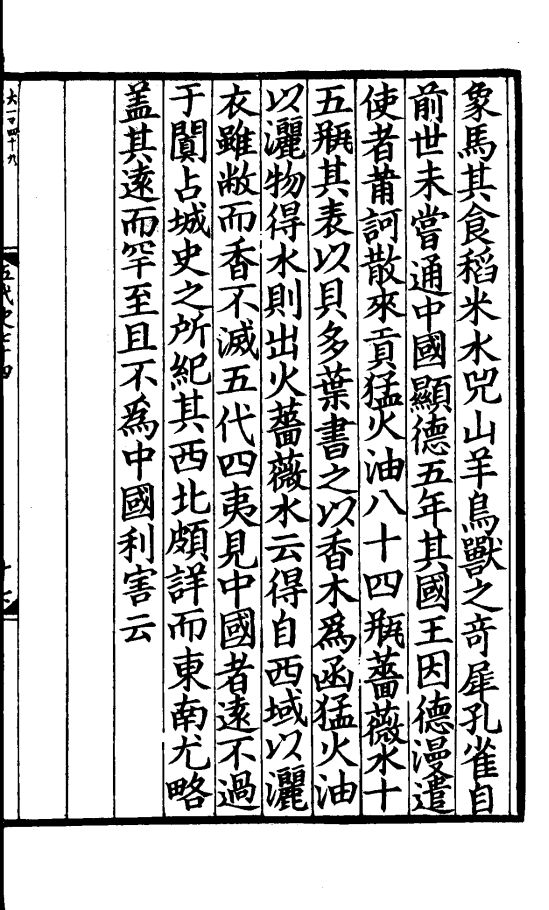 象馬其食稻米水兕山羊鳥獸之奇犀孔雀自
前世未嘗通中國顯德五年其國王因德漫遣
使者莆訶散來貢猛火油八十四瓶薔薇水十
五瓶其表以貝多葉書之以香木爲函猛火油
以灑物得水則出火薔薇水云得自西域以灑
衣雖敝而香不滅五代四夷見中國者遠不過
于闐占城史之所紀其西北頗詳而東南尤略
蓋其遠而罕至且不爲中國利害云
五代史七十四